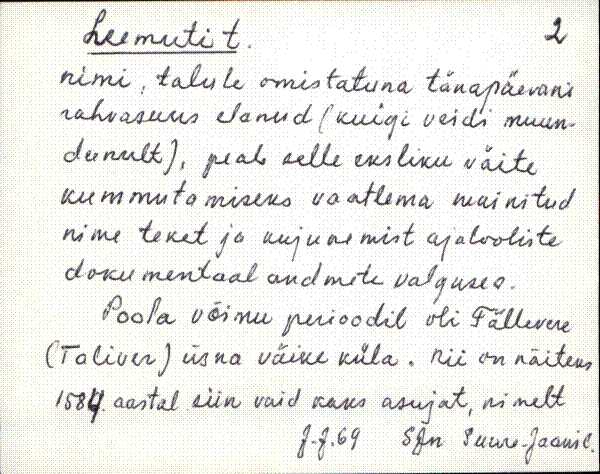 Leemuti t. 2
nimi, talule omistatuna tänapäevani
rahvasuus elanud (kuigi veidi muun-
dunult), peab selle eksliku väite
kummutamiseks vaatlema mainitud
nime teket ja kujunemist ajalooliste
dokumentaalandmete valguses.
Poola võimu perioodil oli Fällevere
(Toliver) üsna väike küla. Nii on näiteks
1584. aastal siin vaid kaks asujat, nimelt
Suure-Jaanil.